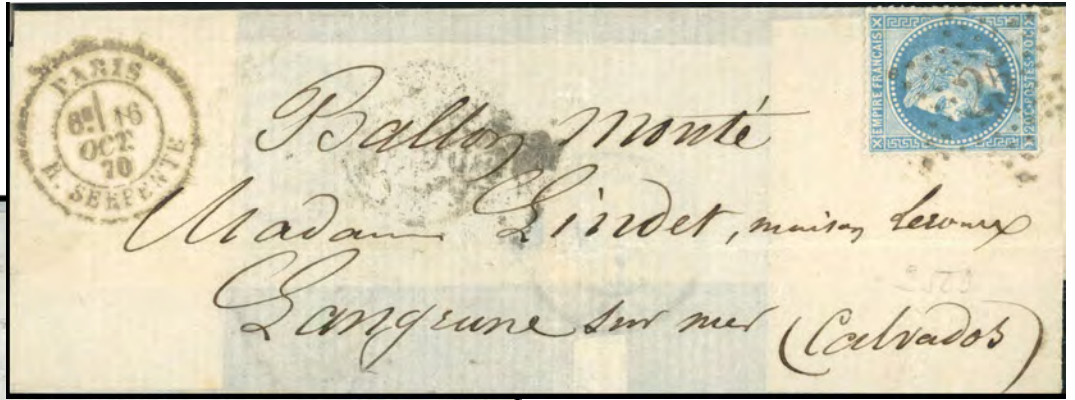 PARIS
6E 16
OCT.
70
R. SERPENTE
EMPIRE FRANÇAIS
20 c POSTES 20 c
25
Ballon monté
Madame Lindet, maison
Langrune sur mer (Calvados)